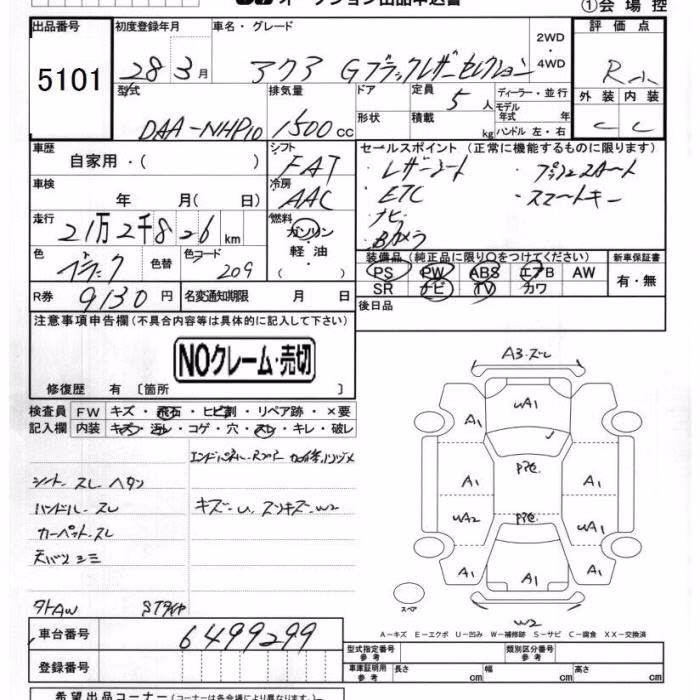 オークション出品申込書
①会場控
出品番号 初度登録年月 車名・グレード 2WD 評価点
5101 28 3月 アクア Gブラックレザーセレクション ・4WD
型式 排気量 ドア 定員 5人 ディーラー・並行 外装 内装
DAA-NHP10 1500cc 形状 積載 kg モデル年式 年式 C C
ハンドル 左・右
車歴 シフト セールスポイント(正常に機能するものに限ります)
自家用・( ) FAT ・レザーシート ・プッシュスタート
車検 冷房 ・ETC ・スマートキー
年 月(日) AAC ・ナビ
走行 燃料 ・Bカメラ
21万2千826km ガソリン
色 色替 色コード 軽油 装備品(純正品に限り○をつけてください) 新車保証書
ブラック 209 ・( ) PS PW ABS エアB AW 有・無
R券 名変通知期限 SR ナビ TV カワ
9130円 月 日 後日品
注意事項申告欄(不具合内容等は具体的に記入して下さい)
NOクレーム・売切
修復歴 有〔箇所 〕
検査員 FW キズ・飛石・ヒビ割・リペア跡・×要
記入欄 内装 キズ・汚レ・コゲ・穴・スレ・キレ・破レ
シート スレ ヘタリ
ハンドル スレ
カーペット スレ
天バリ シミ
キズ-U
W2
社外AW
A3・ズレ
UA1
A1
A1
A1
UA2
UA1
A1
A1
A1
W2
スペア
A-キズ E-エクボ U-凹み W-補修跡 S-サビ C-腐食 XX-交換済
車台番号 6499299
型式指定番号 参考 類別区分番号 参考
登録番号 車庫証明用 参考 長さ cm 幅 cm 高さ cm
希望出品コーナー(コーナーは各会場により異なります)